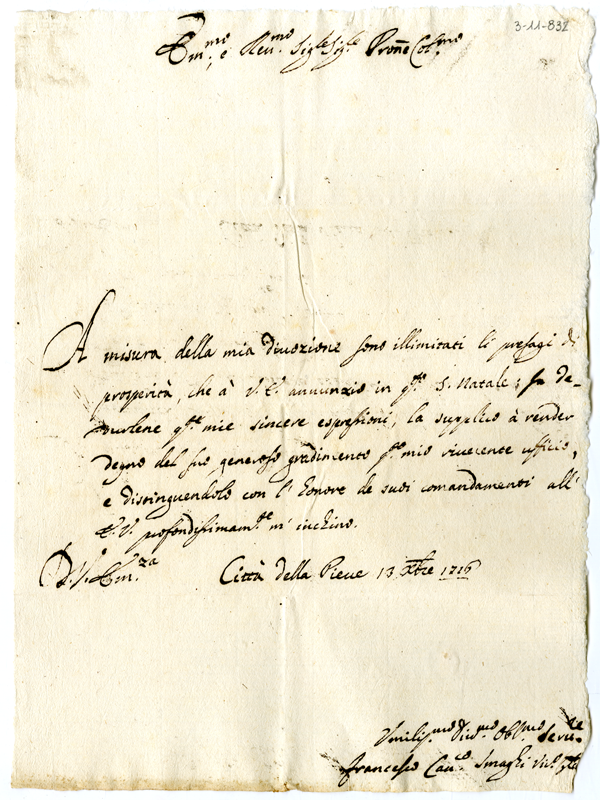 3-11-832
Em.mo, e Rev.mo Sig.re Sig.re Pron̄e Col.mo
A misura della mia divozione sono illimitati li presagi di
prosperità, che à V.E. annunzio in q.to S. Natale; 
q.te mie sincere espressioni, la supplico à render
degno del suo generoso gradimento q.to mio riverente ufficio,
e distinguendolo con l'honore de suoi comandamenti all'
E.V. profondissimam.te m'inchino.
D.V. Em.za
Città della Pieve 13 Xbre 1716
Umilis.mo Div.mo Obl.mo Serv.re
Francesco Cav.o